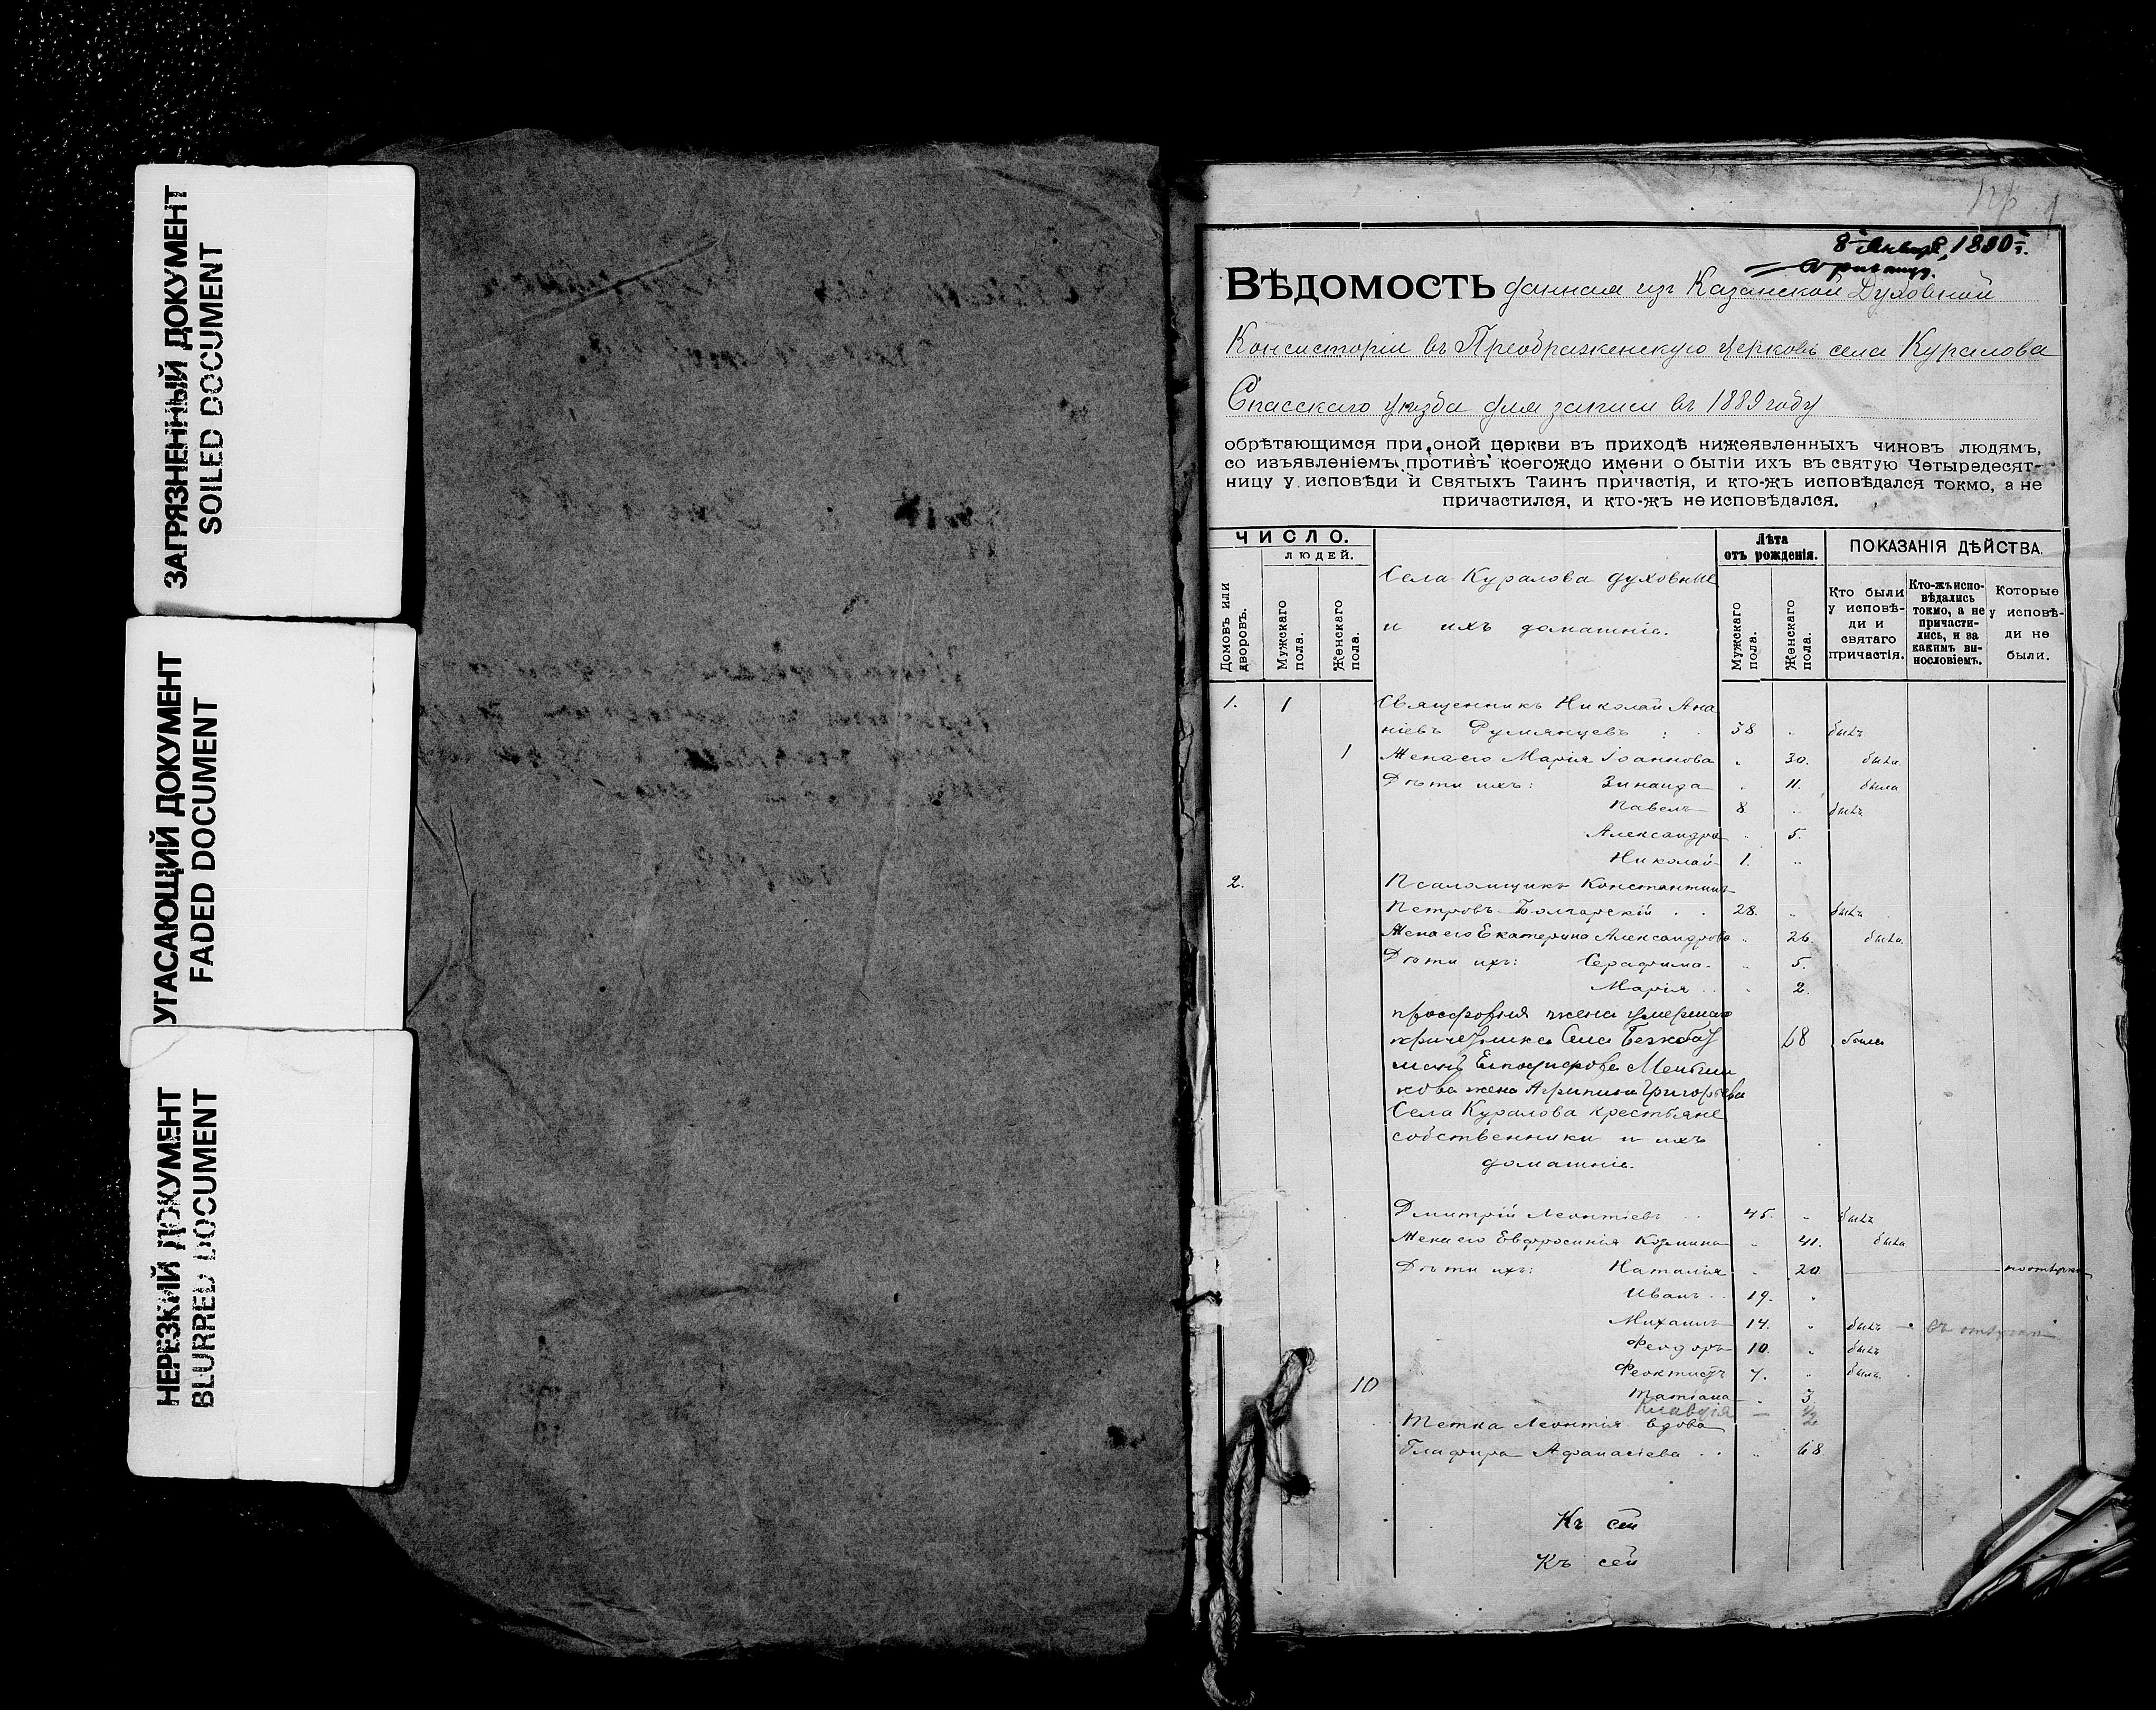 ЗАГРЯЗНЕННЫЙ ДОКУМЕНТ
SOILED DOCUMENT
УГАСАЮЩИЙ ДОКУМЕНТ
FADED DOCUMENT
НЕРЕЗКИЙ ДОКУМЕНТ
BLURRED DOCUMENT
1
8 Января 1890 г.
ВѢДОМОСТЬ данная изъ Казанской Духовной
Консисторіи въ Преображенскую церковь села Куралова
Спасскаго уѣзда для записи въ 1889 году
обрѣтающимся при оной церкви въ приходѣ нижеявленныхъ чиновъ людямъ,
со изъявленіемъ противъ коегождо имени о бытіи ихъ въ святую Четыредесят-
ницу у исповѣди и Святыхъ Таинъ причастія, и кто-жъ исповѣдался токмо, а не
причастился, и кто-жъ не исповѣдался.
ЧИСЛО.
ЛЮДЕЙ.
Домовъ или дворовъ.
Мужскаго пола.
Женскаго пола.
Села Куралова духовные
и ихъ домашніе.
Лѣта
отъ рожденія.
Мужскаго пола.
Женскаго пола.
ПОКАЗАНІЯ ДѢЙСТВА.
Кто были
у исповѣ-
ди и
святаго
причастія.
Кто-жъ испо-
вѣдались
токмо, а не
причасти-
лись, и за
какимъ ви-
нословіемъ.
Которые
у исповѣ-
ди не
были.
1. 1 Священникъ Николай Ана
ніевъ Румянцевъ 38 былъ
1 Жена его Марія Іоаннова 30. была
Дѣти ихъ: Зинаида 11. была
Павелъ 8 былъ
Александра 5.
Николай 1.
2. Псаломщикъ Константинъ
Петровъ Болгарскій 28. былъ
Жена его Екатерина Александрова 26. была
Дѣти ихъ: Серафима. 5.
Марія 2.
просфорня жена умершаго
причетника Села 68 была
жена Агрипина Григорьева
Села Куралова крестьяне
собственники и ихъ
домашніе.
Дмитрій Леонтіевъ 45. былъ
Жена его Евфросинія Козмина 41. была
Дѣти ихъ: Наталія 20
Иванъ 19.
Михаилъ 14. былъ
Феодоръ 10. былъ
Феоктистъ 7. былъ
10 Татіана 3
Клавдія — 1/2
Тетка Леонтія вдова
Глафира Афанасіева 68
Къ сей
Къ сей